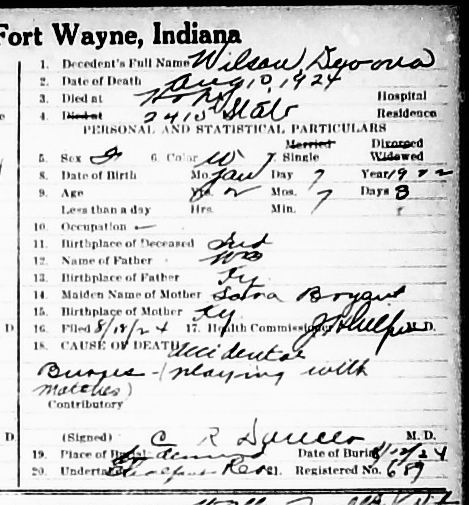 Fort Wayne, Indiana
1. Decedent's Full Name Wilson, Devona
2. Date of Death Aug 10, 1924
3. Died at Hospital
4. Died at 2410 State Residence
PERSONAL AND STATISTICAL PARTICULARS
Married Divorced
5. Sex F 6. Color W 7. Single Widowed
8. Date of Birth Mo. Jan Day 7 Year 1922
9. Age Yrs. 2 Mos. 7 Days 3
Less than a day Hrs. Min.
10. Occupation —
11. Birthplace of Deceased Ind
12. Name of Father Wm
13. Birthplace of Father Ky
14. Maiden Name of Mother Sara Bryant
15. Birthplace of Mother Ky
D 16. Filed 8/18/24 17. Health Commissioner M. D.
18. CAUSE OF DEATH Accidental
Burns (playing with
matches)
Contributory
D. (Signed) C R M. D.
19. Place of Burial Date of Burial 8/12/24
20. Undertaker Registered No. 689